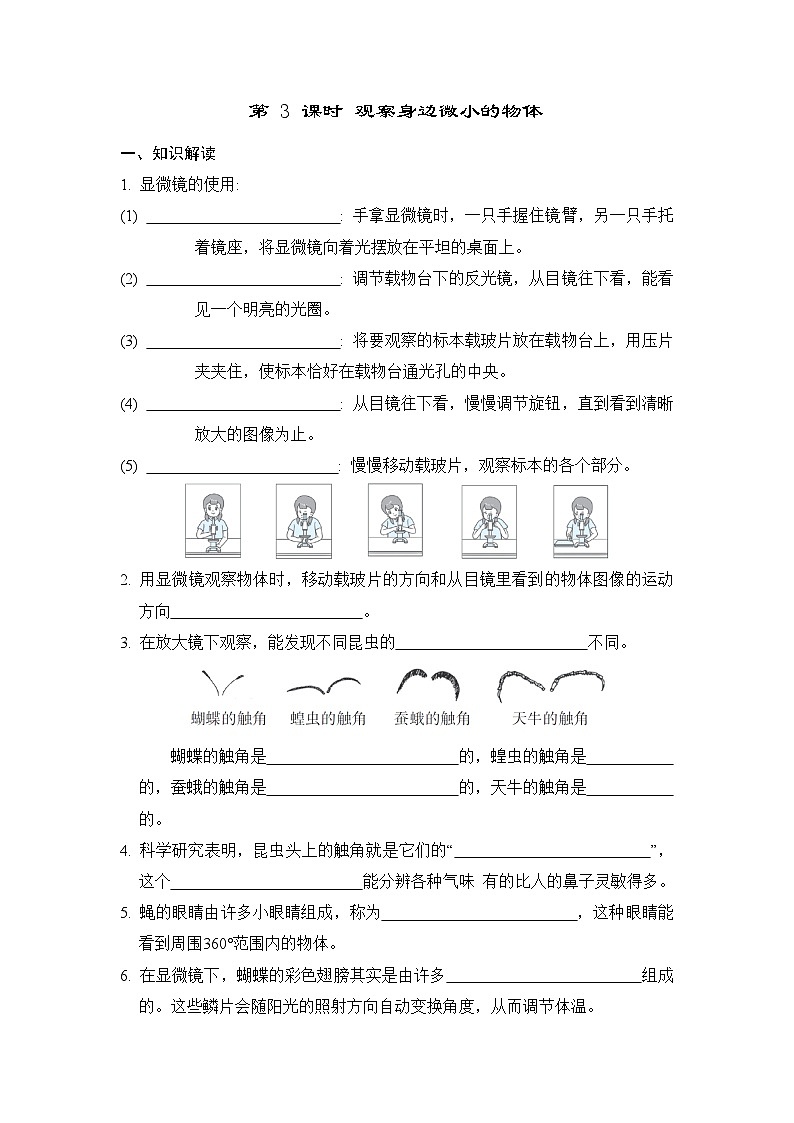 第 3 课时 观察身边微小的物体
一、知识解读
1. 显微镜的使用:
(1) ____________________: 手拿显微镜时，一只手握住镜臂，另一只手托
着镜座，将显微镜向着光摆放在平坦的桌面上。
(2) ____________________: 调节载物台下的反光镜，从目镜往下看，能看
见一个明亮的光圈。
(3) ____________________: 将要观察的标本载玻片放在载物台上，用压片
夹夹住，使标本恰好在载物台通光孔的中央。
(4) ____________________: 从目镜往下看，慢慢调节旋钮，直到看到清晰
放大的图像为止。
(5) ____________________: 慢慢移动载玻片，观察标本的各个部分。
2. 用显微镜观察物体时，移动载玻片的方向和从目镜里看到的物体图像的运动
方向____________________。
3. 在放大镜下观察，能发现不同昆虫的____________________不同。
蝴蝶的触角 蝗虫的触角 蚕蛾的触角 天牛的触角
蝴蝶的触角是____________________的，蝗虫的触角是__________
的，蚕蛾的触角是____________________的，天牛的触角是__________
的。
4. 科学研究表明，昆虫头上的触角就是它们的“____________________”，
这个____________________能分辨各种气味 有的比人的鼻子灵敏得多。
5. 蝇的眼睛由许多小眼睛组成，称为____________________，这种眼睛能
看到周围360°范围内的物体。
6. 在显微镜下，蝴蝶的彩色翅膀其实是由许多____________________组成
的。这些鳞片会随阳光的照射方向自动变换角度，从而调节体温。